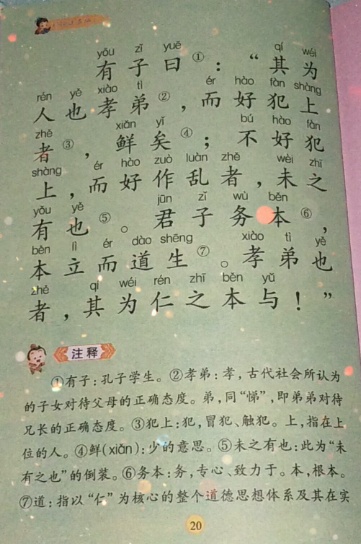 yǒu zǐ yuē qí wéi
有子曰①：“其为
rén yě xiào tì ér hào fàn shàng
人也孝弟②，而好犯上
zhě xiǎn yǐ bú hào fàn
者③，鲜矣④；不好犯
shàng ér hào zuò luàn zhě wèi zhī
上，而好作乱者，未之
yǒu yě jūn zǐ wù běn
有也⑤。君子务本⑥，
běn lì ér dào shēng xiào tì yě
本立而道生⑦。孝弟也
zhě qí wéi rén zhī běn yú
者，其为仁之本与！”
注释
①有子：孔子学生。②孝弟：孝，古代社会所认为
的子女对待父母的正确态度。弟，同“悌”，即弟弟对待
兄长的正确态度。③犯上：犯，冒犯、触犯。上，指在上
位的人。④鲜(xiǎn)：少的意思。⑤未之有也：此为“未
有之也”的倒装。⑥务本：务，专心、致力于。本，根本。
⑦道：指以“仁”为核心的整个道德思想体系及其在实
20